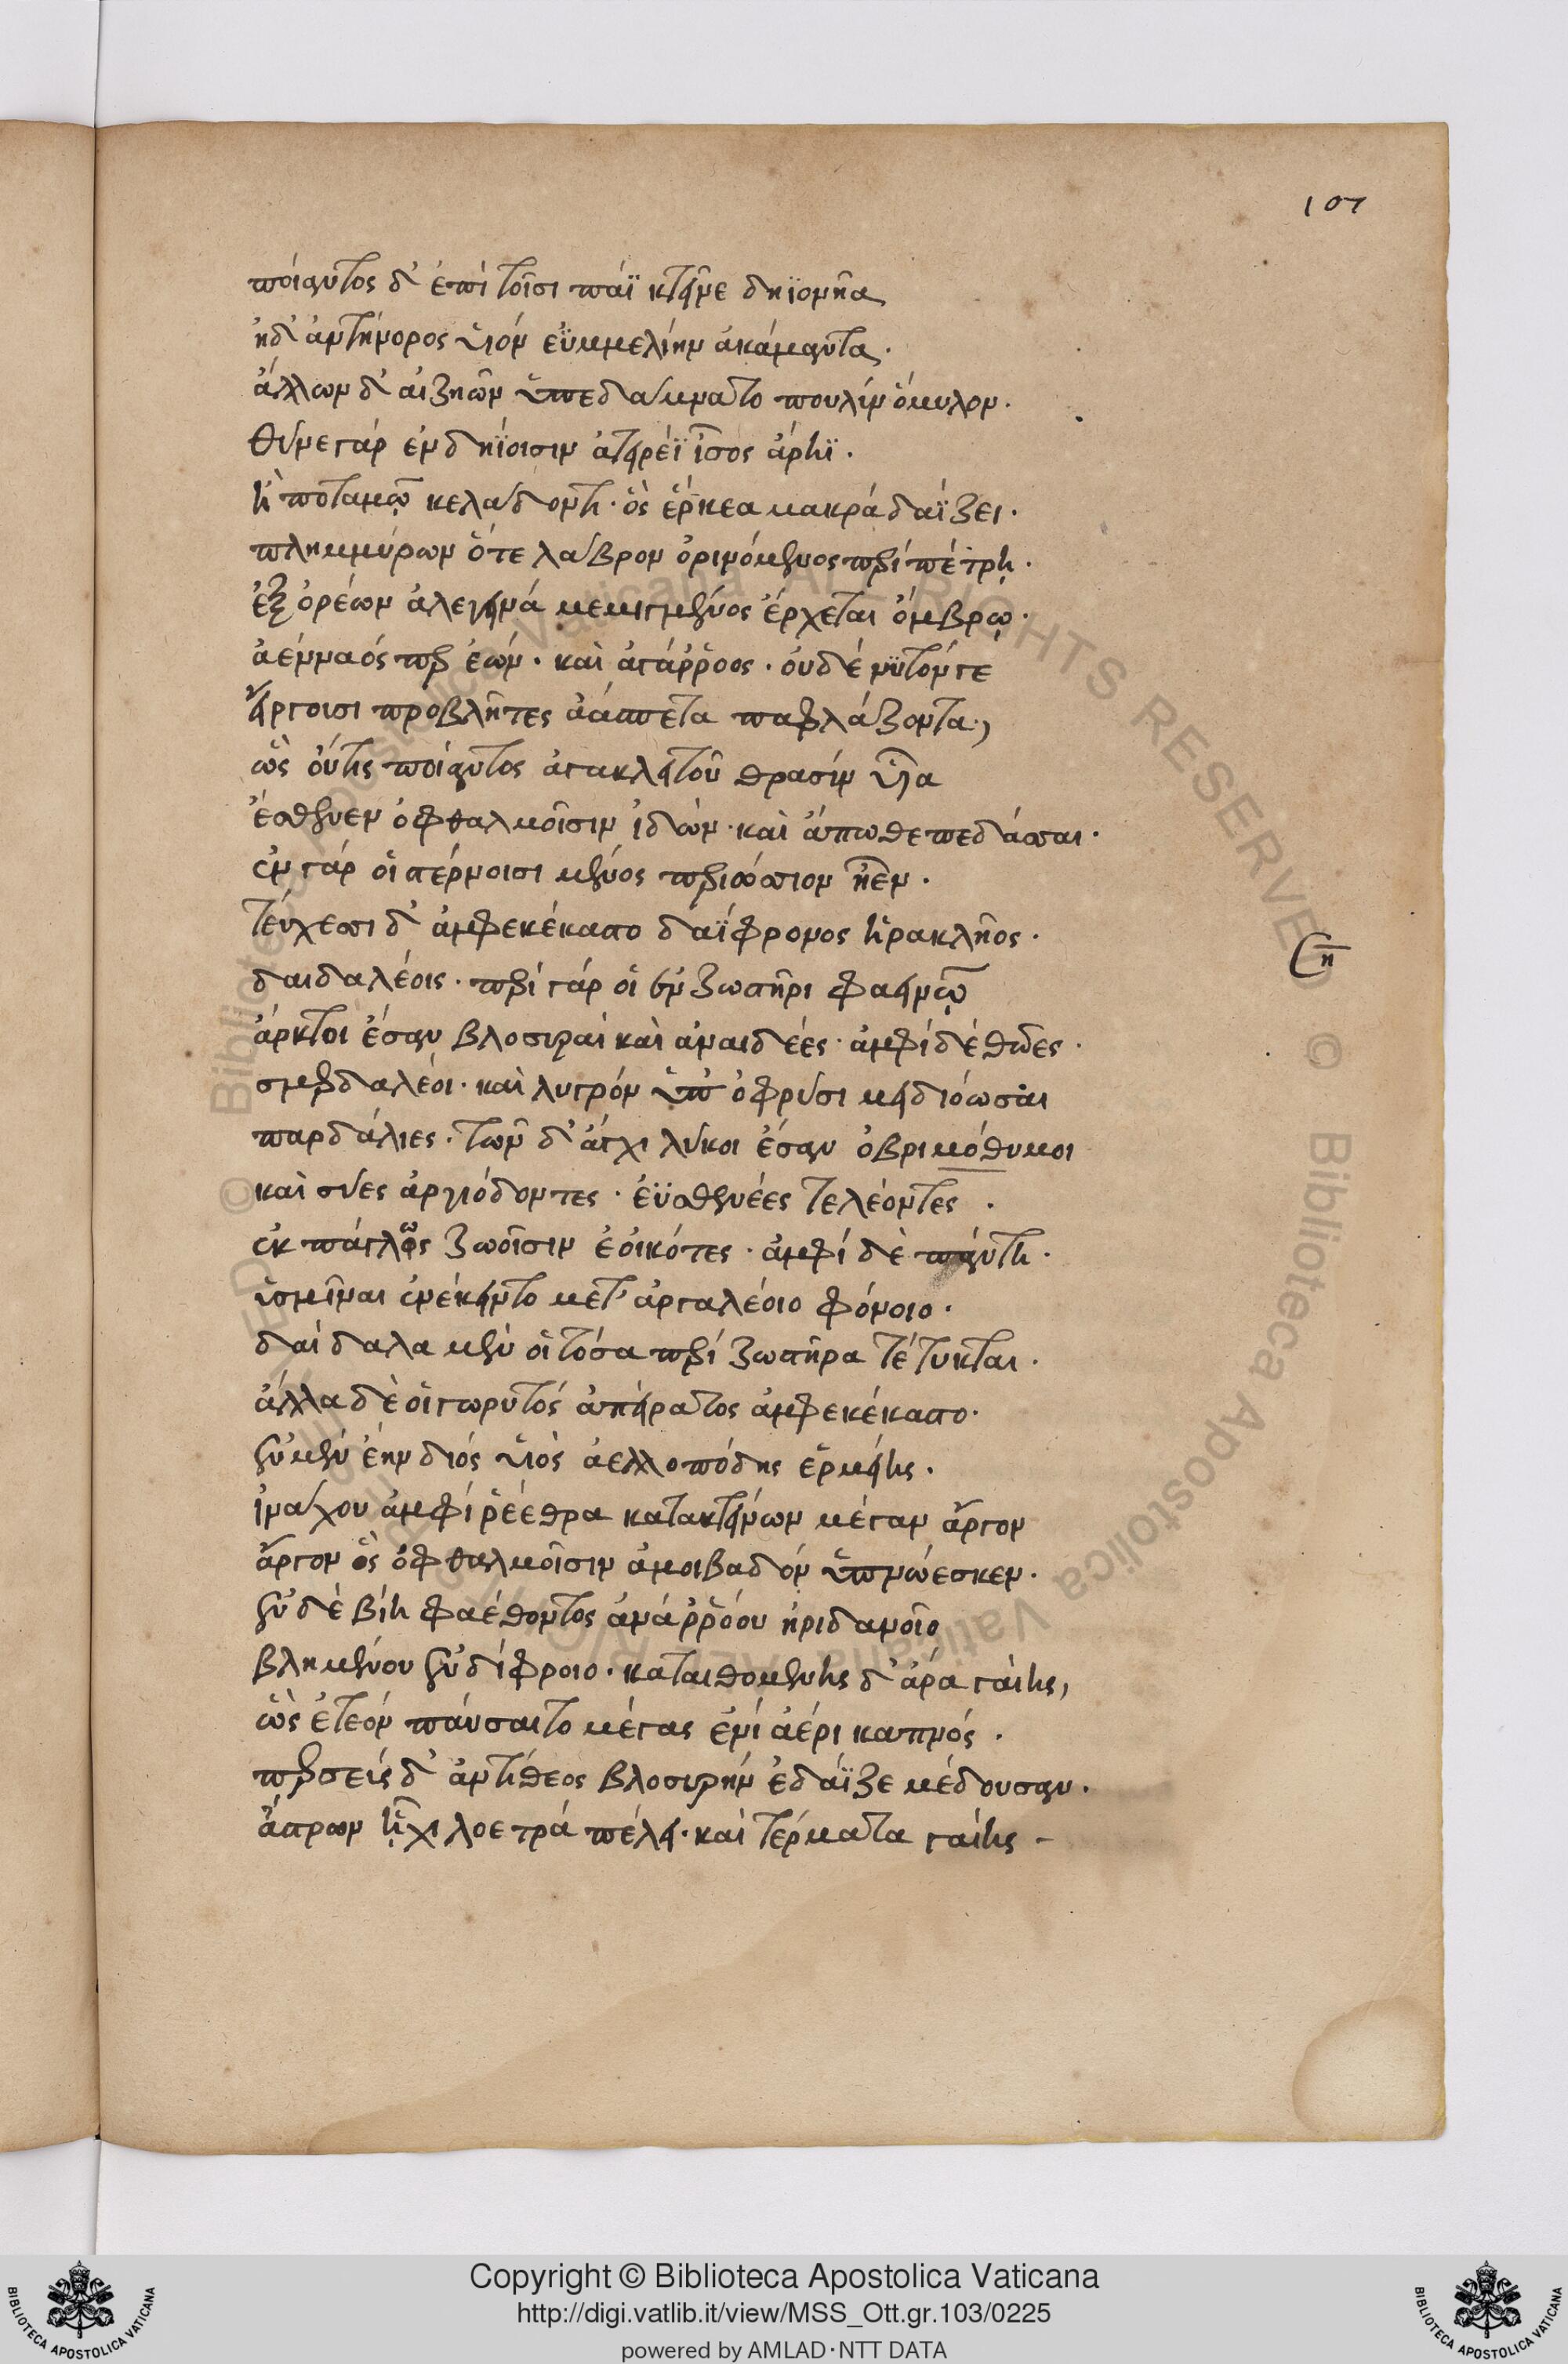 107
ποίαντος δ' ἐπὶ τοῖσι πάϊ κτεῖνε δηϊονῆα
ἠδ' ἀντήνορος υἱὸν εὐμμελίην ἀκάμαντα.
ἄλλων δ' αἰζηῶν ὑπεδάμνατο πουλὺν ὅμιλον.
θῦνε γὰρ ἐν δηίοισιν ἀτειρέϊ ἶσος ἄρηϊ.
ἢ ποταμῷ κελάδοντι. ὃς ἕρκεα μακρὰ δαΐζει.
πλημμύρων ὅτε λάβρον ὀρινόμενος περὶ πέτρῃ.
ἐξ ὀρέων ἀλεγεινὰ μεμιγμένος ἔρχεται ὄμβρῳ.
ἀέννაός περ ἐών. καὶ ἀγάρροος. οὐδέ νυ τόν γε
εἴργουσι προβλῆτες ἀάσπετα παφλάζοντα,
ὣς οὔτις ποίαντος ἀγακλειτοῦ θρασὺν υἷα
ἔσθενεν ὀφθαλμοῖσιν ἰδὼν. καὶ ἄπωθε πεδάσσαι.
ἐν γάρ οἱ στέρνοισι μένος περιώσιον ἦεν.
τεύχεσι δ' ἀμφεκέκαστο δαΐφρονος ἡρακλῆος.
δαιδαλέοις. περὶ γάρ οἱ ἐν ζωστῆρι φαεινῷ
ἄρκτοι ἔσαν βλοσυραὶ καὶ ἀναιδέες. ἀμφὶ δὲ θῶες.
σμερδαλέοι. καὶ λυγρὸν ὑπ' ὀφρύσι μειδιόωσαι
παρδάλιες. τῶν δ' ἄγχι λύκοι ἔσαν ὀβριμόθυμοι
καὶ σύες ἀργιόδοντες. ἐϋσθενέες τε λέοντες.
ἐκπάγλως ζωοῖσιν ἐοικότες. ἀμφὶ δὲ πάντῃ.
ὑσμῖναι ἐνέκειντο μετ' ἀργαλέοιο φόνοιο.
δαίδαλα μέν οἱ τόσα περὶ ζωστῆρα τέτυκται.
ἄλλα δέ οἱ γωρυτὸς ἀπείρατος ἀμφεκέκαστο.
ἐν μὲν ἔην διὸς υἱὸς ἀελλοπόδης ἑρμείης.
ἰνάχου ἀμφὶ ῥέεθρα κατακτείνων μέγαν ἄργον
ἄργον ὃς ὀφθαλμοῖσιν ἀμοιβαδὸν ὑπνώεσκεν.
ἐν δὲ βίη φαέθοντος ἀνὰ ῥόον ἠριδανοῖο
βλημένου ἐν δίφροιο. καταιθομένης δ' ἄρα γαίης,
ὡς ἐτεὸν παύσαιτο μέγας ἐνὶ ἀέρι καπνός.
περσεὺς δ' ἀντίθεος βλοσυρὴν ἐδάϊζε μέδουσαν.
ἄστρων ἧχι λοετρὰ πέλει. καὶ τέρματα γαίης
Copyright © Biblioteca Apostolica Vaticana
http://digi.vatlib.it/view/MSS_Ott.gr.103/0225
powered by AMLAD·NTT DATA